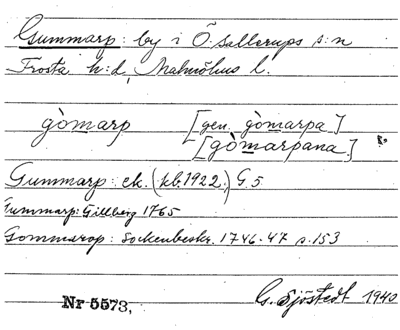 Gummarp: by i Ö. Sallerups s:n
Frosta h:d, Malmöhus l.
gòmarp [gen. gòmarpa]
[gòmarpana]
Gummarp: ek. (kb. 1922.) G. 5.
Gummarp: Gillberg 1765
Gommarop: Sockenbeskr. 1746-47 s. 153
Nr 5573,
G. Sjöstedt 1940